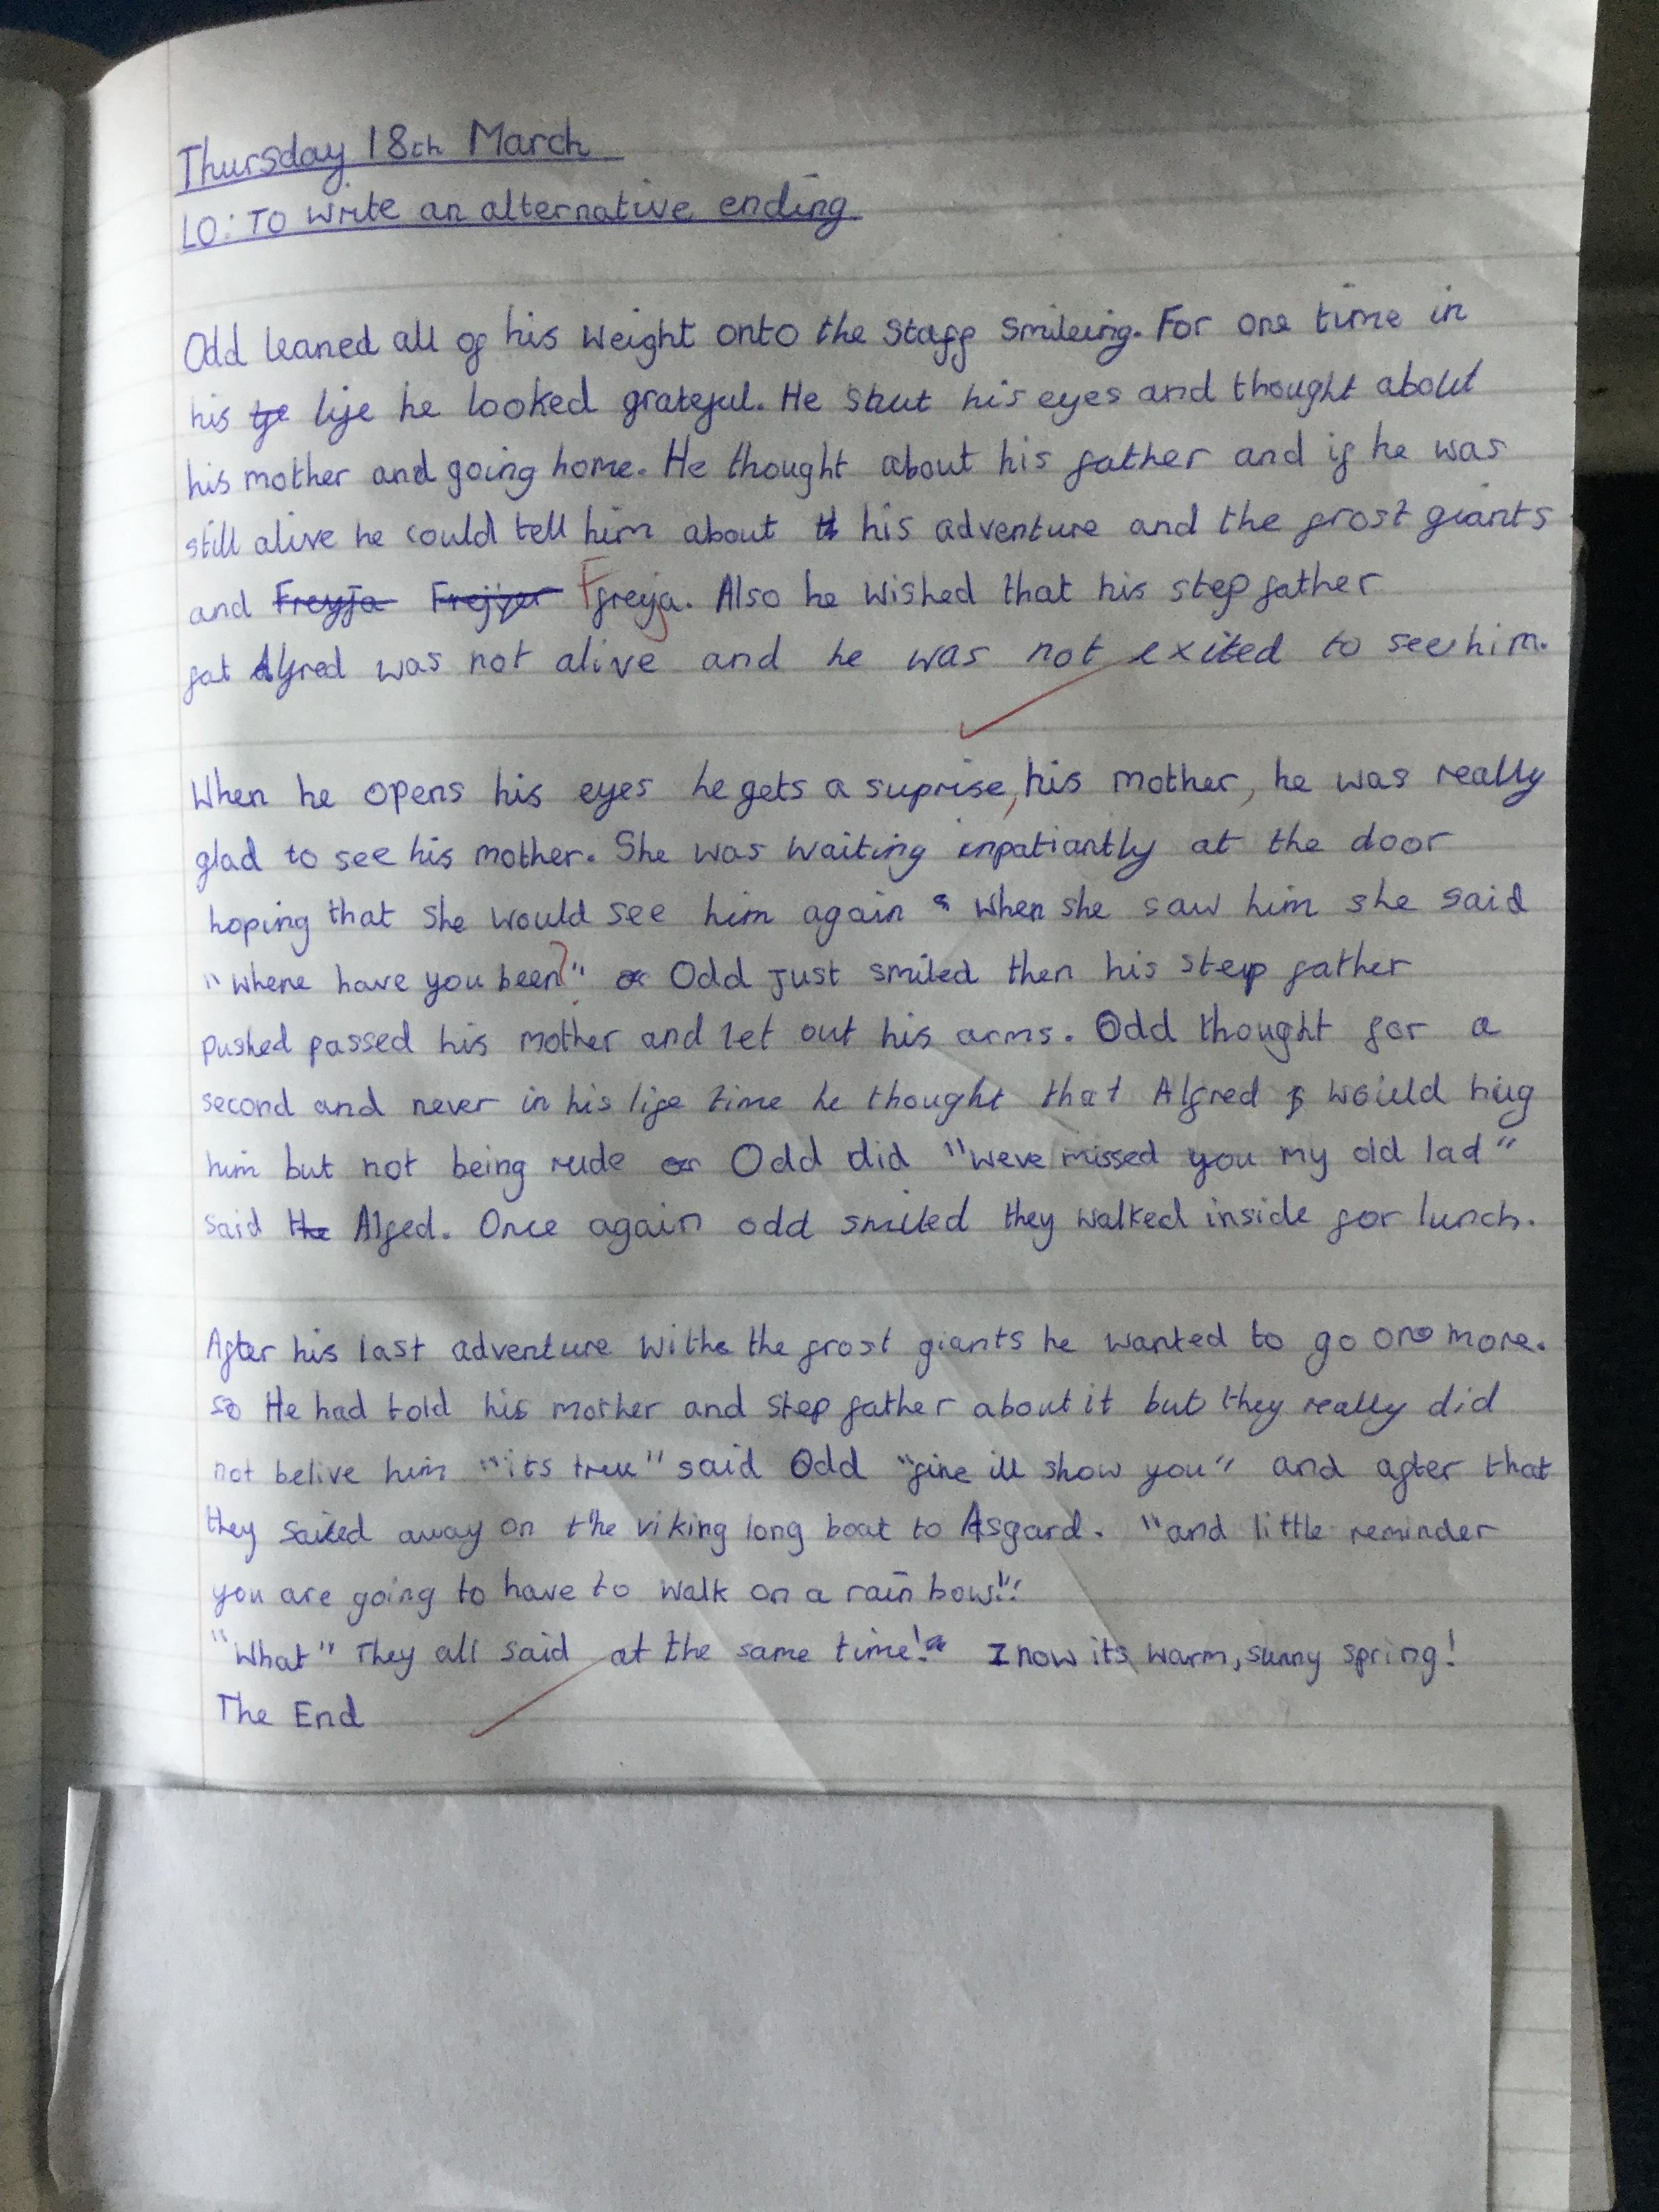 Thursday 18th March
LO: To write an alternative ending
Odd leaned all of his weight onto the staff smileing. For one time in
his life he looked grateful. He shut his eyes and thought about
his mother and going home. He thought about his father and if he was
still alive he could tell him about his adventure and the frost giants
and Freyja Frejyer Freya. Also he wished that his step father
fat Alfred was not alive and he was not exited to see him.
When he opens his eyes he gets a suprise, his mother, he was really
glad to see his mother. She was waiting inpatiantly at the door
hoping that she would see him again. When she saw him she said
"where have you been?" Odd just smiled then his step father
pushed passed his mother and let out his arms. Odd thought for a
second and never in his life time he thought that Alfred would hug
him but not being rude Odd did "weve missed you my old lad"
said the Alfed. Once again odd smiled they walked inside for lunch.
After his last adventure withe the frost giants he wanted to go on more.
so He had told his mother and step father about it but they really did
not belive him "its true" said Odd "fine ill show you" and after that
they sailed away on the viking long boat to Asgard. "and little reminder
you are going to have to walk on a rain bow!"
"What" They all said at the same time! I now its warm, sunny spring!
The End